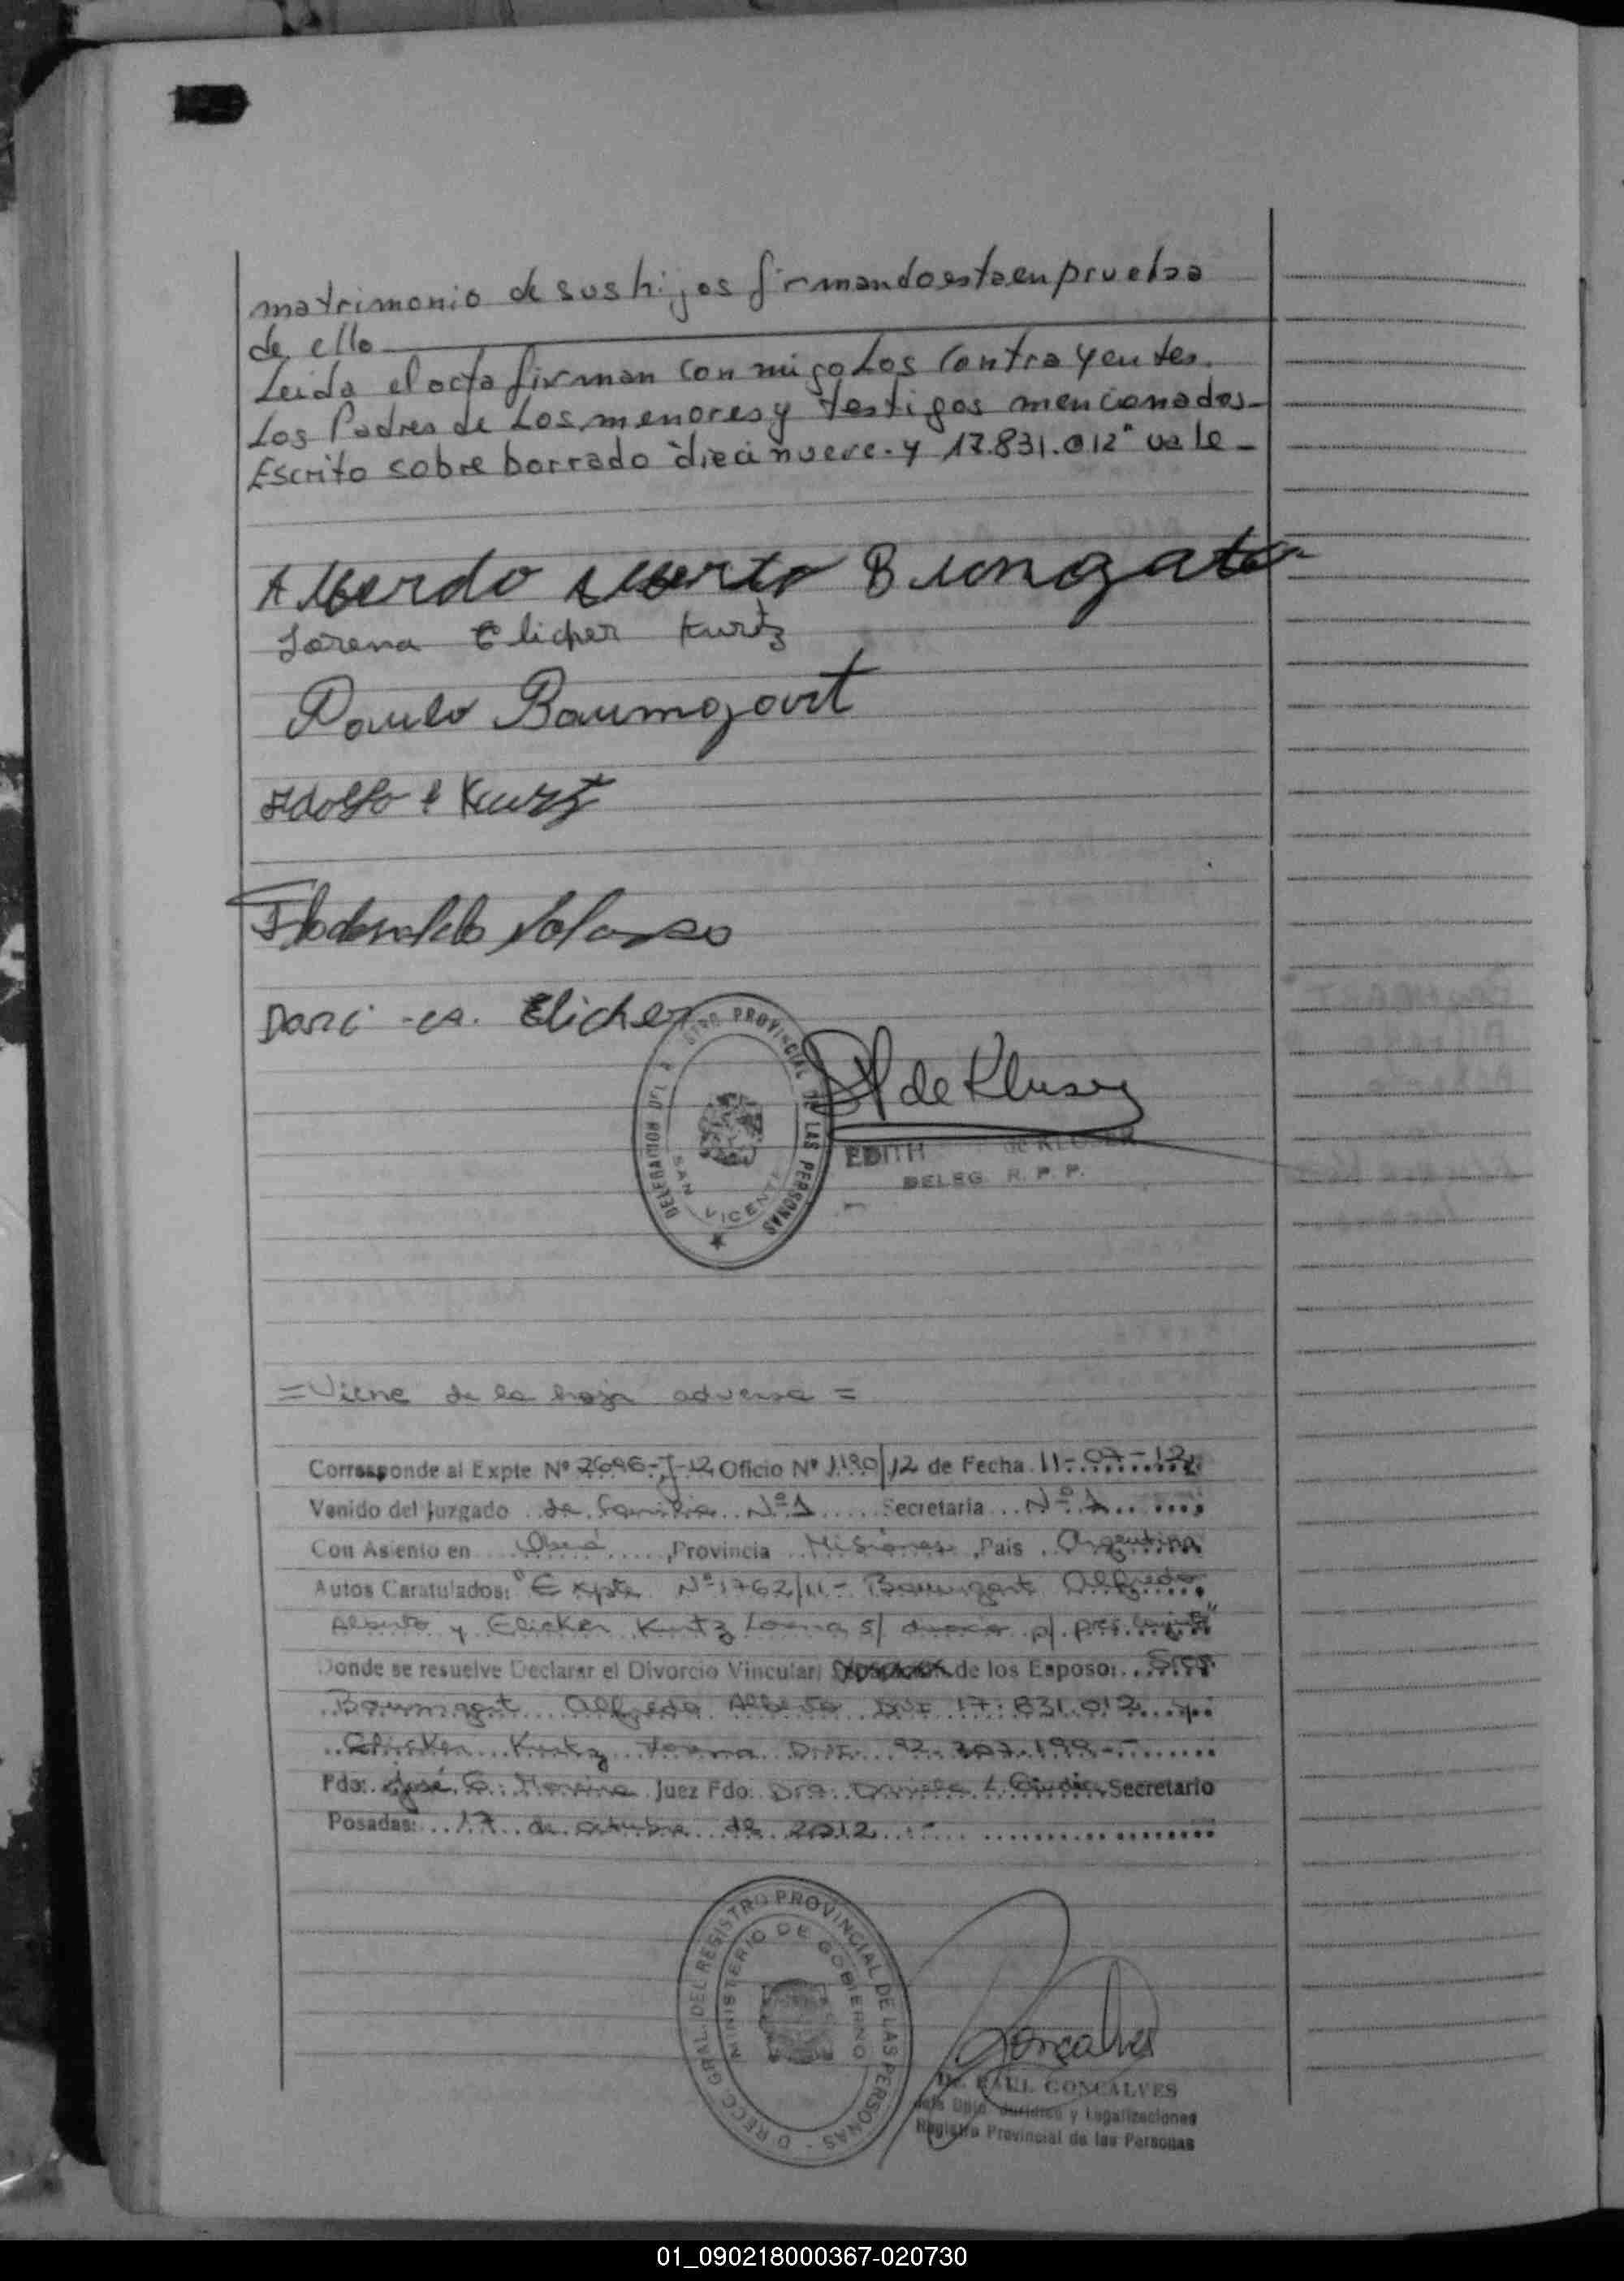 matrimonio de sus hijos firmando esta en prueba
de ello
Leida el acta firman conmigo Los Contrayentes.
Los Padres de Los menores y testigos mencionados-
Escrito sobre borrado "diecinueve. y 17.831.012" vale-
Lorena Elicher Kurtz
Paulo Baumgart
Adolfo Kurtz
Darci Elicher
DELEGACION DEL REGISTRO PROVINCIAL DE LAS PERSONAS
SAN VICENTE
de Kluser
EDITH de KLUSER
DELEG. R. P. P.
=Viene de la hoja adversa=
Corresponde al Expte Nº 2696-J-12 Oficio Nº 1190/12 de Fecha 11-07-12
Venido del Juzgado de Familia Nº1 Secretaria Nº 1
Con Asiento en Oberá, Provincia Misiones, Pais Argentina
Autos Caratulados: "Expte Nº 1762/11- Baumgart Alfredo
Alberto y Elicker Kurtz Lorena s/ divorcio p/ pres. conjunta"
Donde se resuelve Declarar el Divorcio Vincular de los Esposo: Sres.
Baumgart Alfredo Alberto DNI 17.831.012 y
Elicker Kurtz Lorena DNI 92.307.199-
Fdo: José G. Moreira Juez Fdo: Dra. Daniela Secretario
Posadas: 17 de octubre de 2012
DIRECC. GRAL. DEL REGISTRO PROVINCIAL DE LAS PERSONAS -
MINISTERIO DE GOBIERNO
Goncalves
Dr. RAUL GONCALVES
Jefe Dpto. Juridico y Legalizaciones
Registro Provincial de las Personas
01_090218000367-020730